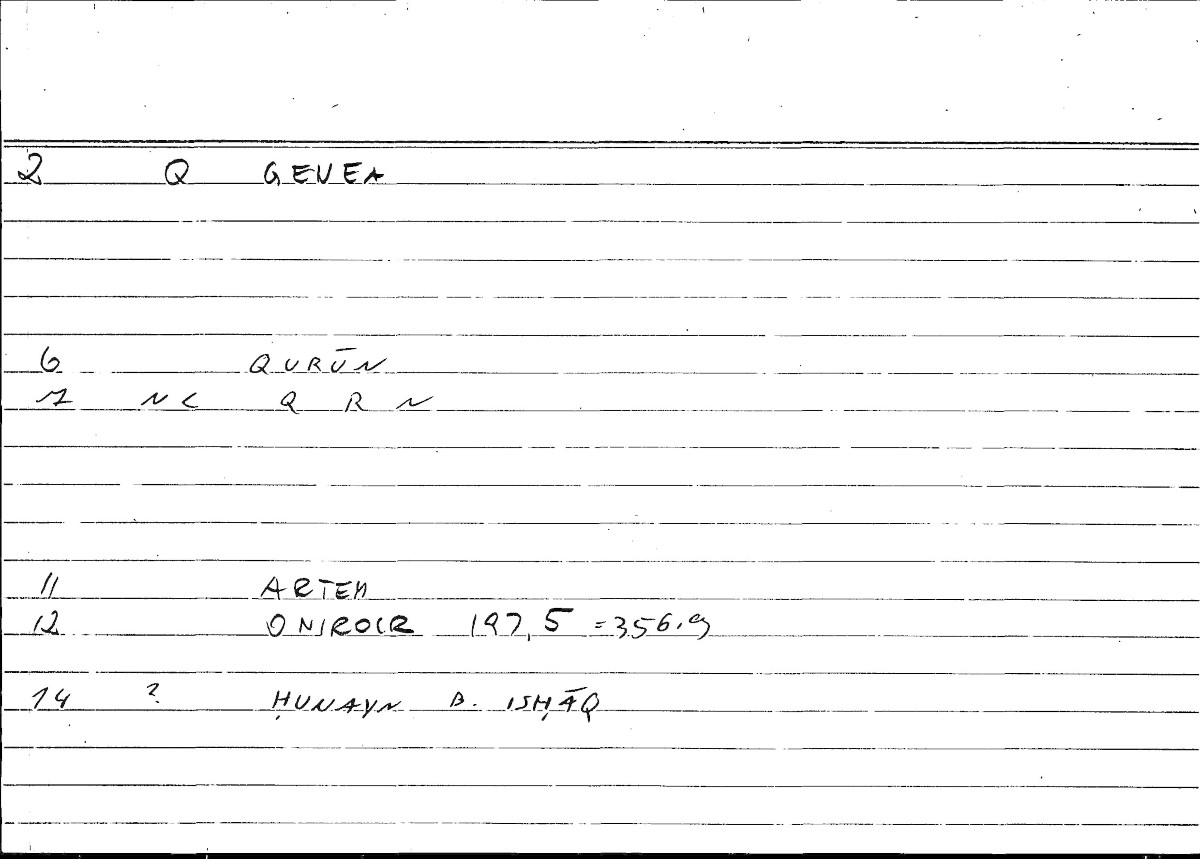 2 Q GENEA
6 QURŪN
7 NC Q R N
11 ARTEM
12 ONIROCR 197,5 = 356,9
14 ? ḤUNAYN B. ISḤĀQ